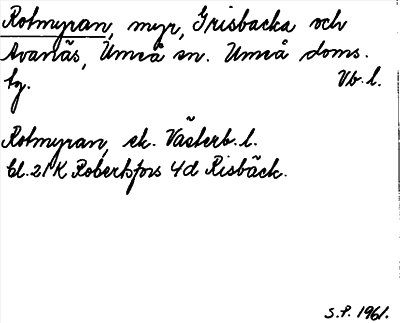 Rotmyran, myr, Grisbacka och
Avanäs, Umeå sn. Umeå doms.
tg. Vb. l.
Rotmyran, ek. Västerb. l.
bl. 21 K Robertsfors 4d Risbäck.
S.P. 1961.